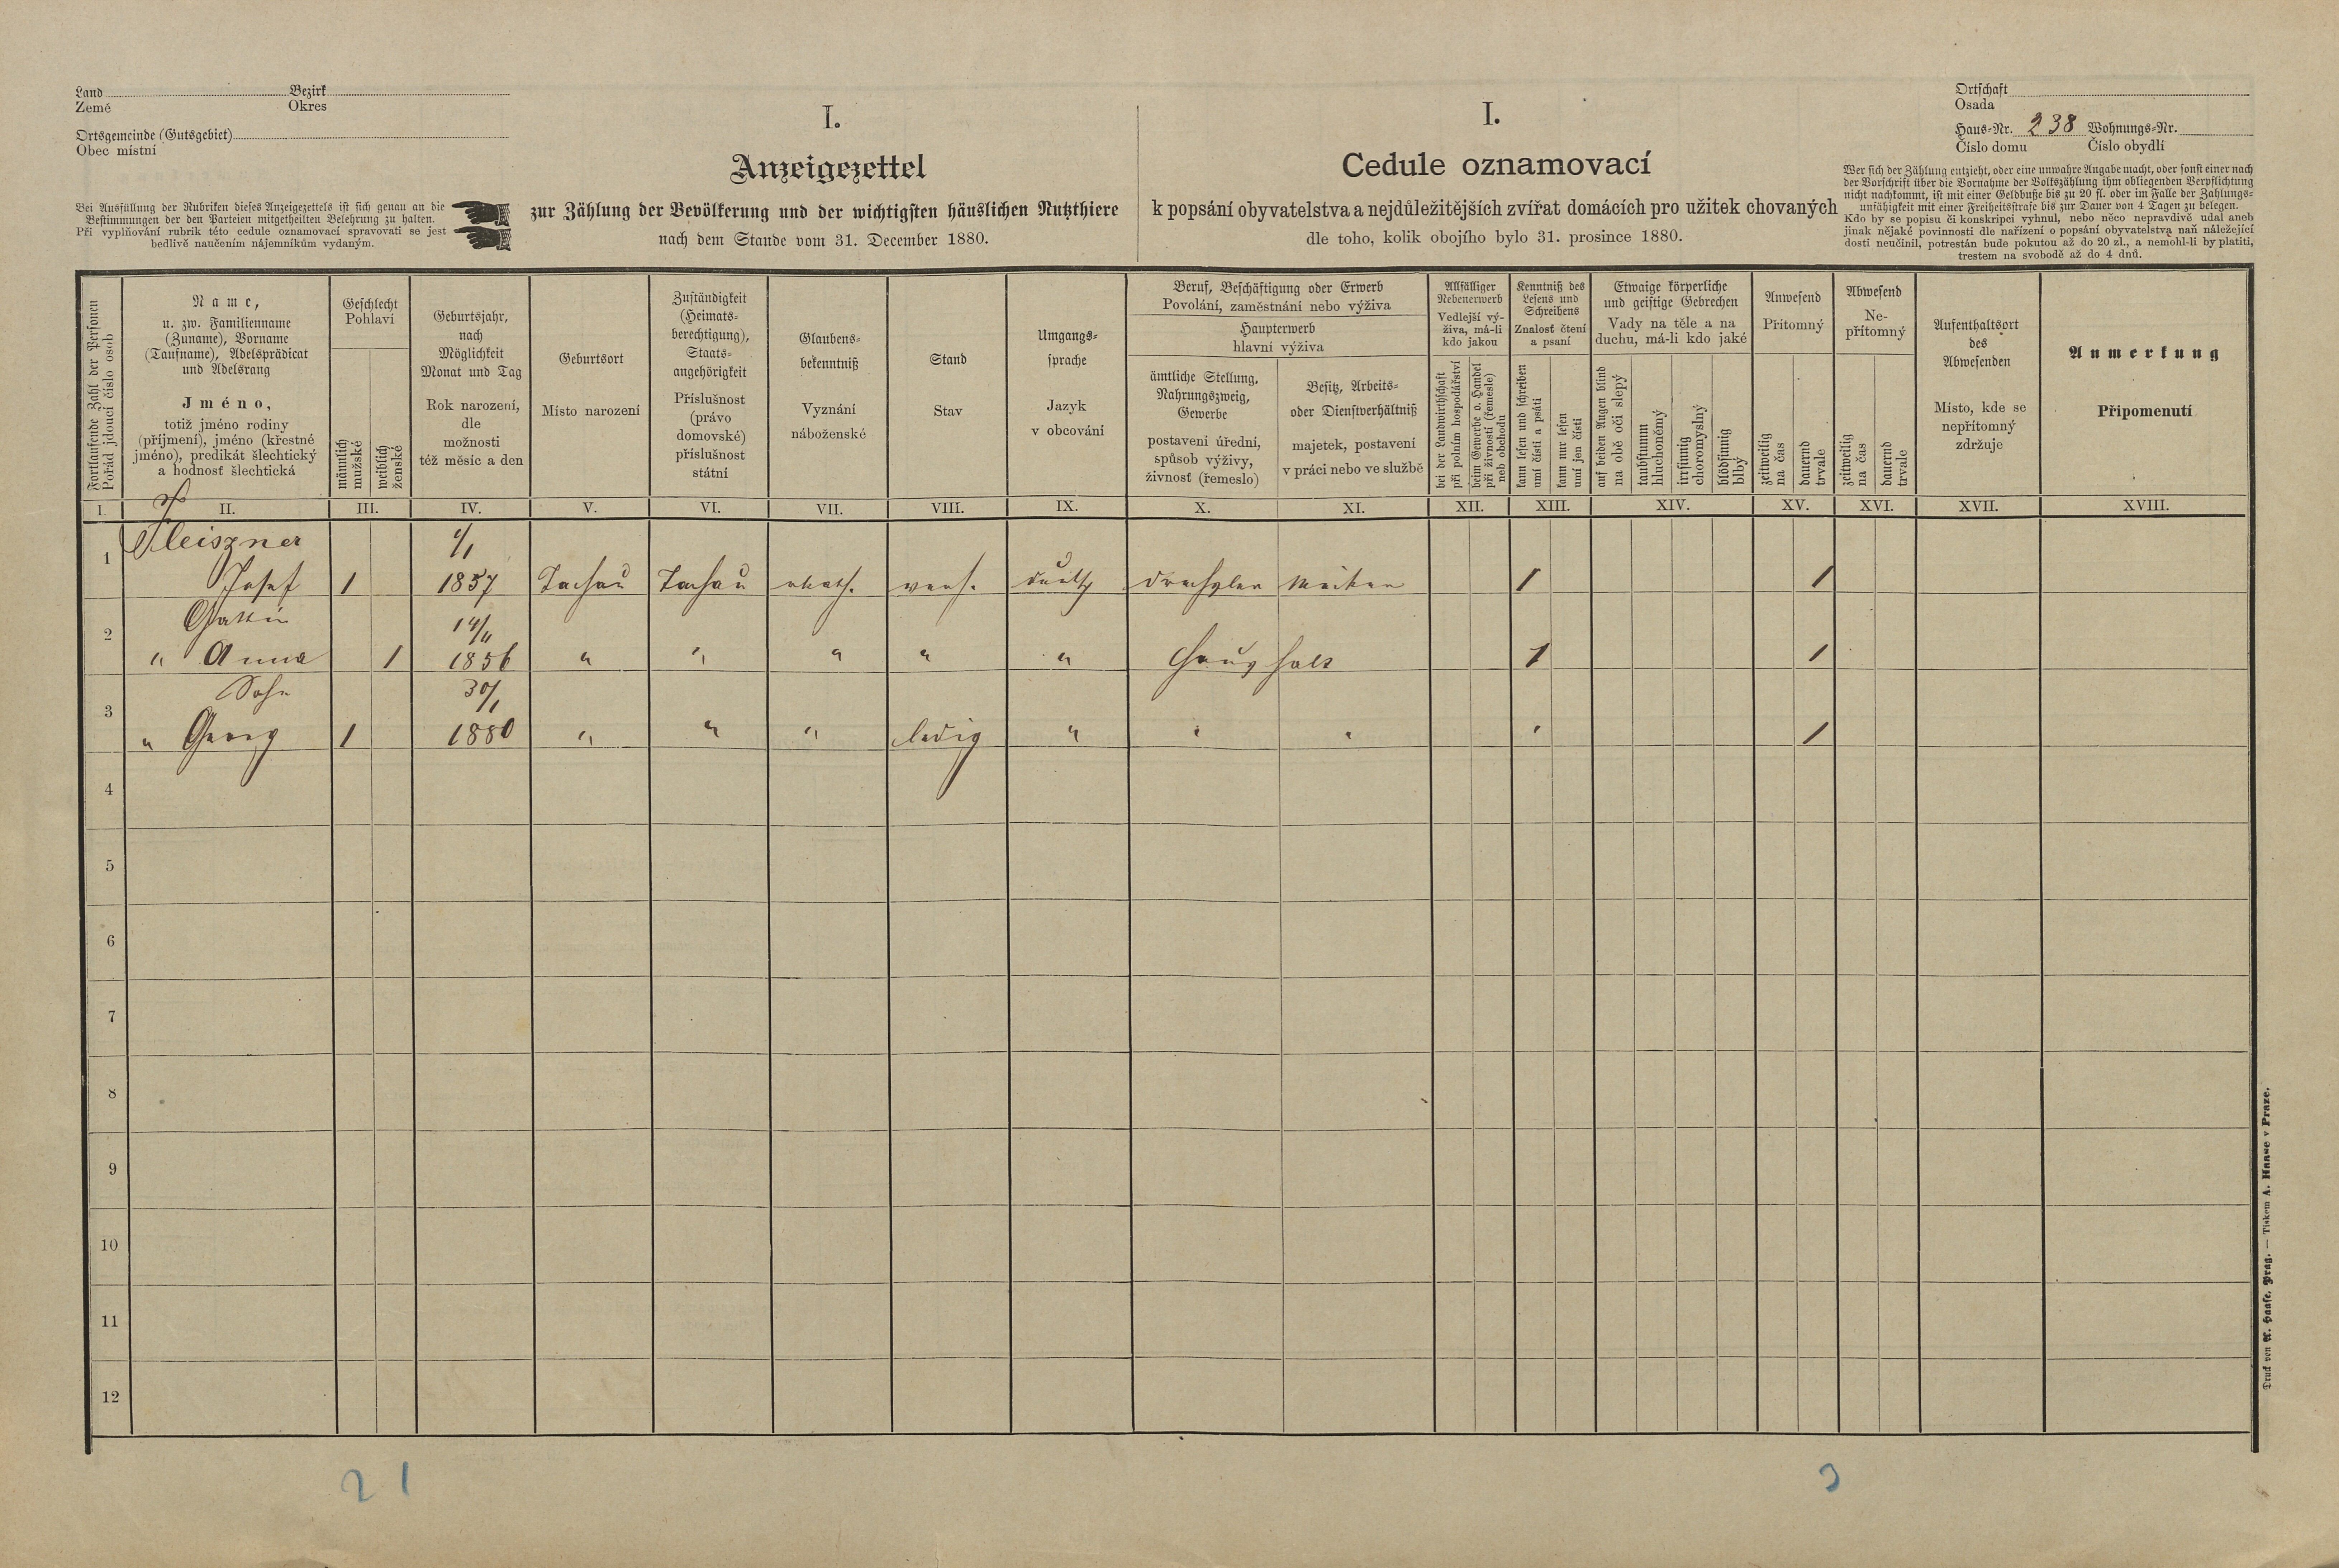 Land Bezirk
Země Okres
Ortsgemeinde (Gutsgebiet)
Obec místní
Bei Ausfüllung der Rubriken dieses Anzeigezettels ist sich genau an die
Bestimmungen der den Parteien mitgetheilten Belehrung zu halten.
Při vyplňování rubrik této cedule oznamovací spravovati se jest
bedlivě naučením nájemníkům vydaným.
I.
Anzeigezettel
zur Zählung der Bevölkerung und der wichtigsten häuslichen Nutzthiere
nach dem Stande vom 31. December 1880.
I.
Cedule oznamovací
k popsání obyvatelstva a nejdůležitějších zvířat domácích pro užitek chovaných
dle toho, kolik obojího bylo 31. prosince 1880.
Ortschaft
Osada
Haus-Nr. 238 Wohnungs-Nr.
Číslo domu Číslo obydlí
Wer sich der Zählung entzieht, oder eine unwahre Angabe macht, oder sonst einer nach
der Vorschrift über die Vornahme der Volkszählung ihm obliegenden Verpflichtung
nicht nachkommt, ist mit einer Geldbuße bis zu 20 fl. oder im Falle der Zahlungs-
unfähigkeit mit einer Freiheitsstrafe bis zur Dauer von 4 Tagen zu belegen.
Kdo by se popisu či konskripci vyhnul, nebo něco nepravdivě udal aneb
jinak nějaké povinnosti dle nařízení o popsání obyvatelstva naň náležející
dosti neučinil, potrestán bude pokutou až do 20 zl., a nemohl-li by platiti,
trestem na svobodě až do 4 dnů.
Fortlaufende Zahl der Personen
Pořád jdoucí číslo osob
Name,
u. zw. Familienname
(Zuname), Vorname
(Taufname), Adelsprädicat
und Adelsrang
Jméno,
totiž jméno rodiny
(příjmení), jméno (křestné
jméno), predikát šlechtický
a hodnosť šlechtická
Geschlecht
Pohlaví
männlich
mužské
weiblich
ženské
Geburtsjahr,
nach
Möglichkeit
Monat und Tag
Rok narození,
dle
možnosti
též měsíc a den
Geburtsort
Místo narození
Zuständigkeit
(Heimats-
berechtigung),
Staats-
angehörigkeit
Příslušnost
(právo
domovské)
příslušnost
státní
Glaubens-
bekenntniß
Vyznání
náboženské
Stand
Stav
Umgangs-
sprache
Jazyk
v obcování
Beruf, Beschäftigung oder Erwerb
Povolání, zaměstnání nebo výživa
Haupterwerb
hlavní výživa
ämtliche Stellung,
Nahrungszweig,
Gewerbe
postavení úřední,
spůsob výživy,
živnosť (řemeslo)
Besitz, Arbeits-
oder Dienstverhältniß
majetek, postavení
v práci nebo ve službě
Allfälliger
Nebenerwerb
Vedlejší vý-
živa, má-li
kdo jakou
bei der Landwirthschaft
při polním hospodářství
beim Gewerbe o. Handel
při živnosti (řemesle)
neb obchodu
Kenntniß des
Lesens und
Schreibens
Znalosť čtení
a psaní
kann lesen und schreiben
umí čísti a psáti
kann nur lesen
umí jen čísti
Etwaige körperliche
und geistige Gebrechen
Vady na těle a na
duchu, má-li kdo jaké
auf beiden Augen blind
na obě oči slepý
taubstumm
hluchoněmý
irrsinnig
choromyslný
blödsinnig
blbý
Anwesend
Přítomný
zeitweilig
na čas
dauernd
trvale
Abwesend
Ne-
přítomný
zeitweilig
na čas
dauernd
trvale
Aufenthaltsort
des
Abwesenden
Místo, kde se
nepřítomný
zdržuje
Anmerkung
Připomenutí
I. II. III. IV. V. VI. VII. VIII. IX. X. XI. XII. XIII. XIV. XV. XVI. XVII. XVIII.
1 Fleiszner
Josef 1 1857 Tachau Tachau rkath. verh. deutsch Drechsler Meister 1 1
2 Gattin 14/11
" Anna 1 1856 " " " " " Haushalt 1 1
3 Sohn 30/1
" Georg 1 1880 " " " ledig " " " " 1
4
5
6
7
8
9
10
11
12
2 1 3
Druck von A. Haase, Prag. — Tiskem A. Haase v Praze.